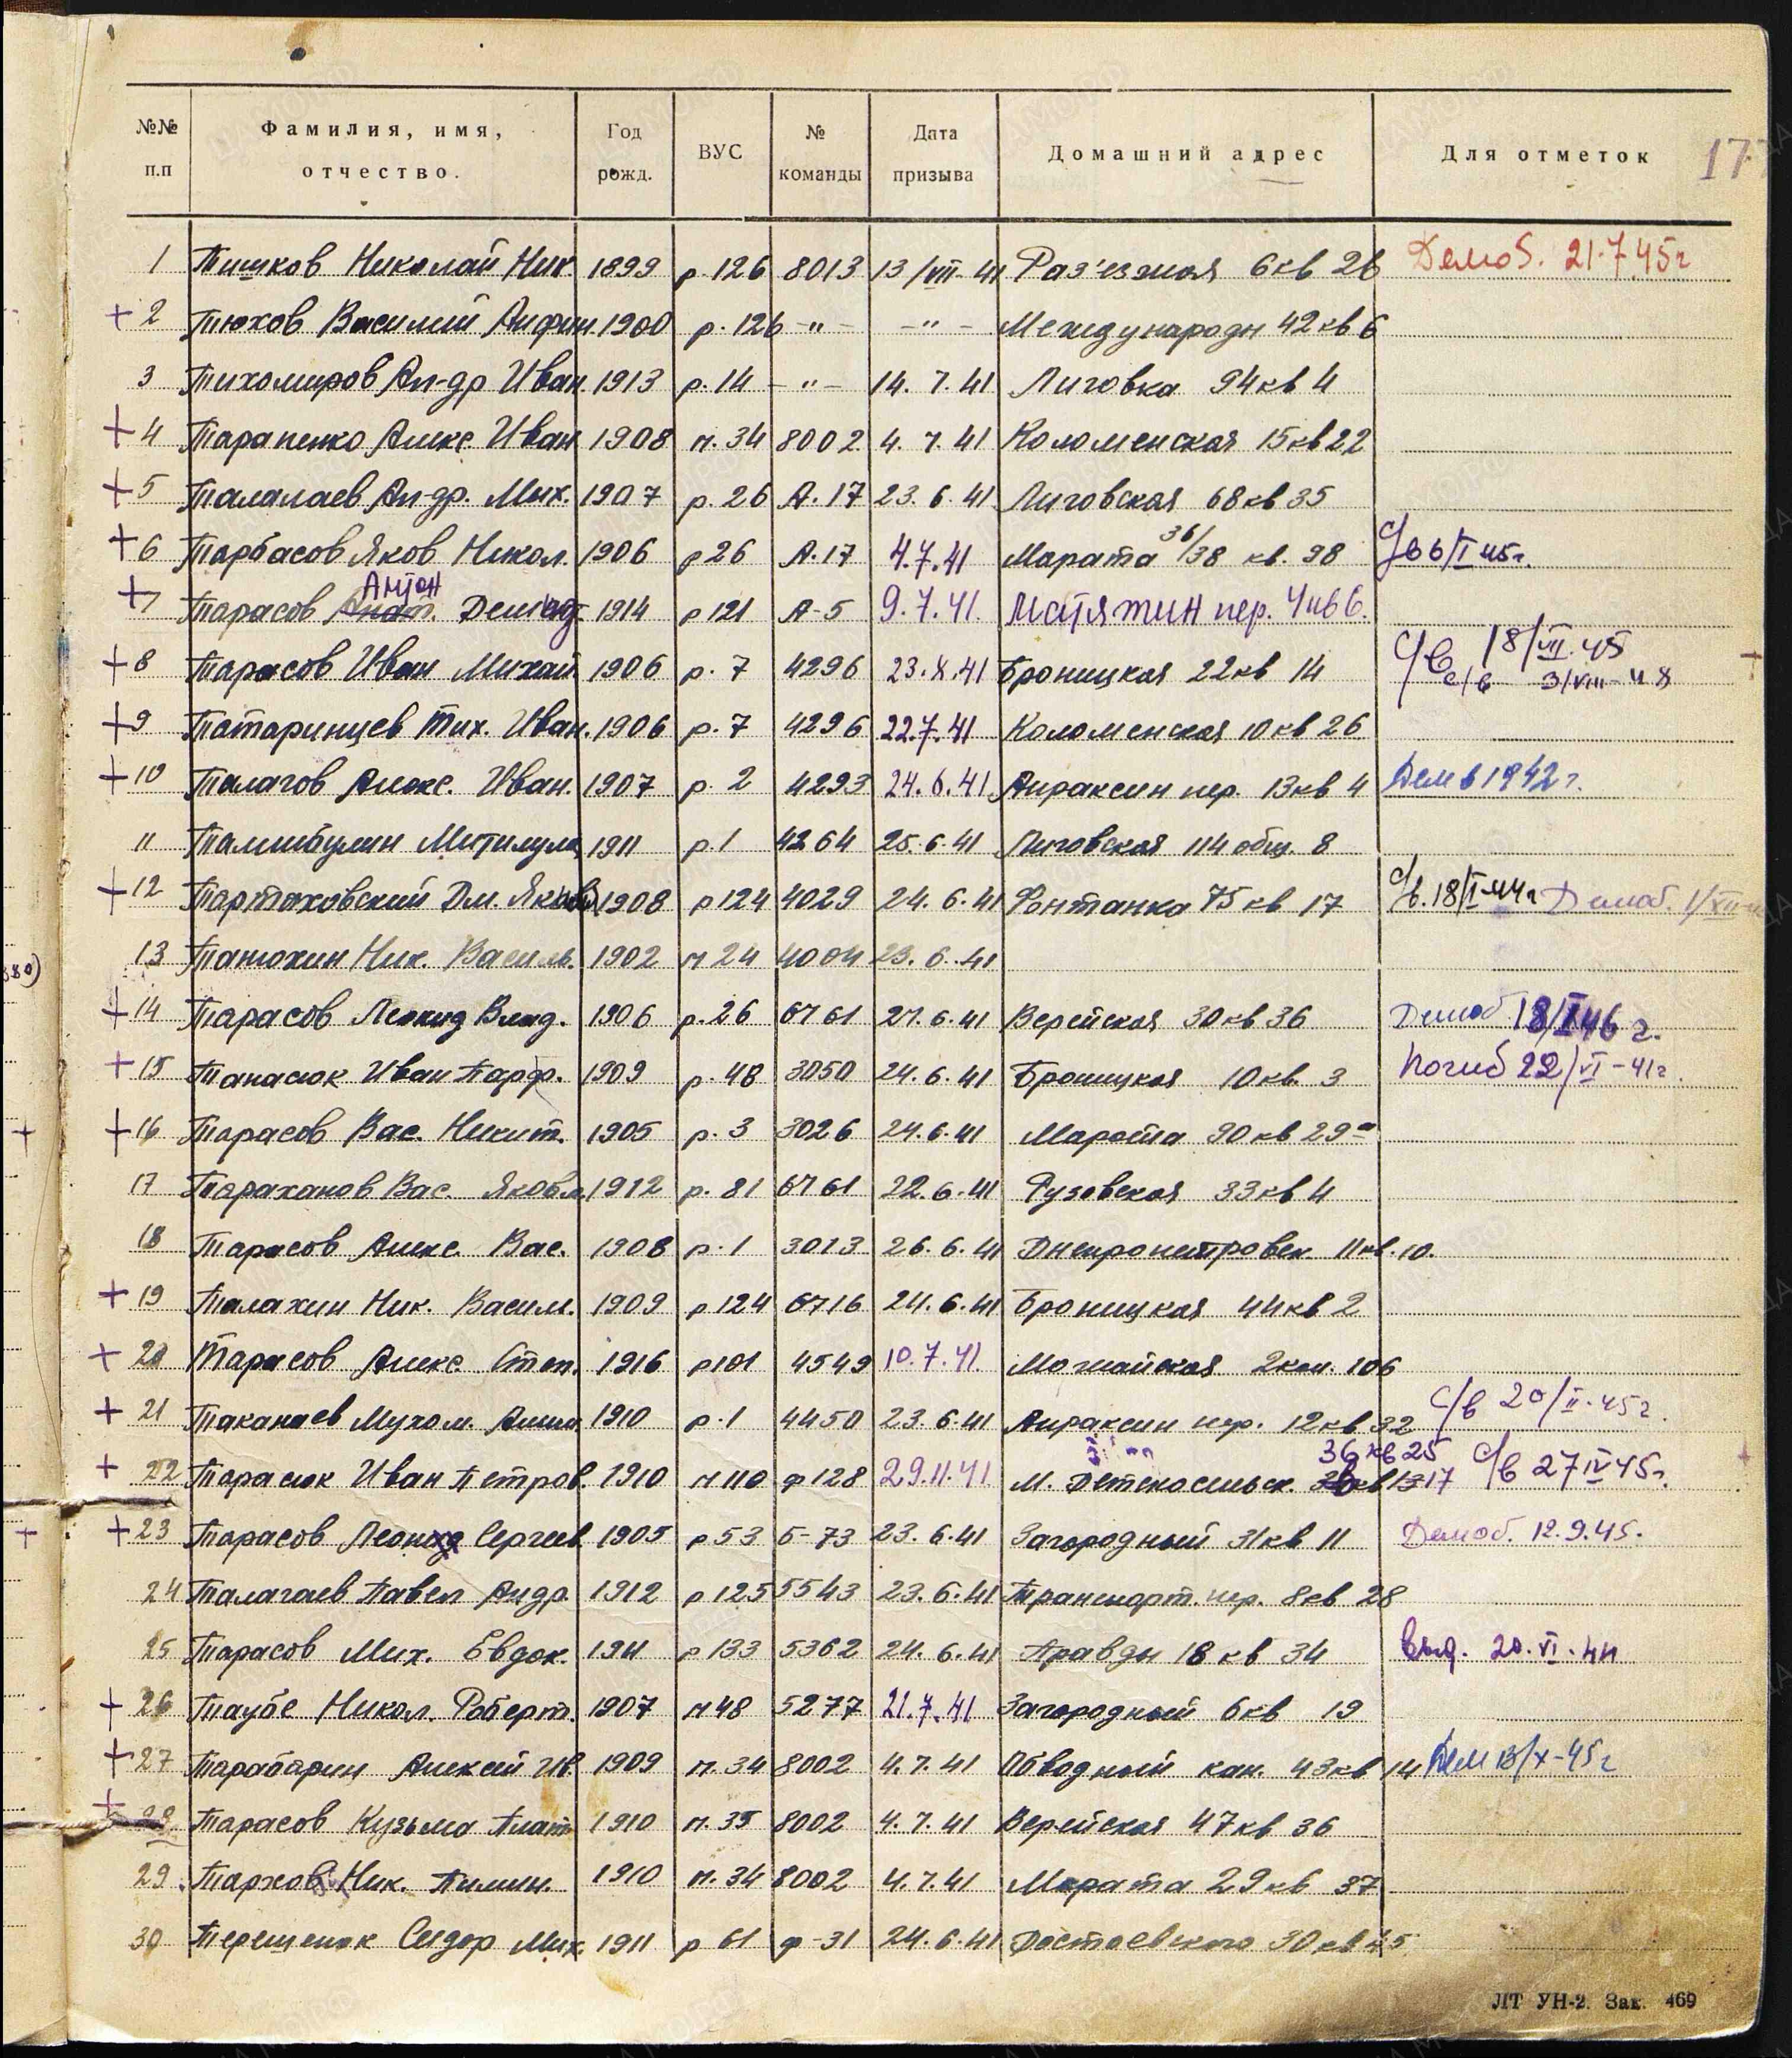 №№ п.п Фамилия, имя, отчество. Год рожд. ВУС № команды Дата призыва Домашний адрес Для отметок 17
1 Тишков Николай Ник 1899 р. 126 8013 13/VII-41 Раз'езжая 6 кв 26 Демоб. 21.7.45г
+ 2 Тюхов Василий Анфим. 1900 р. 126 -"- -"- Международн 42 кв 6
3 Тихомиров Ал-др Иван. 1913 р. 14 -"- 14.7.41 Лиговка 94 кв 4
+ 4 Тарапенко Алекс. Иван. 1908 м. 34 8002 4.7.41 Коломенская 15 кв 22
+ 5 Талалаев Ал-др. Мих. 1907 р. 26 А.17 23.6.41 Лиговская 68 кв 35
+ 6 Тарбасов Яков Никол. 1906 р 26 А.17 4.7.41 Марата 36/38 кв. 98 с/в 6/I 45г.
Антон
+ 7 Тарасов Анат. Демид. 1914 р 121 А-5 9.7.41. Матятин пер. 4 кв 6.
+ 8 Тарасов Иван Михай. 1906 р. 7 4296 23.X.41 Броницкая 22 кв 14 с/в 18/VII.45
с/в 3/VIII-48
+ 9 Татаринцев Тих. Иван. 1906 р. 7 4296 22.7.41 Коломенская 10 кв 26
+ 10 Талагов Алекс. Иван. 1907 р. 2 4293 24.6.41 Апраксин пер. 13 кв 4 Дем в 1942 г.
11 1911 р 1 4264 25.6.41 Лиговская 114 общ. 8
+ 12 Тартаковский Дм. Яковл 1908 р 124 4029 24.6.41 Фонтанка 75 кв 17 с/в. 18/I-44г Демоб.
13 Танюхин Ник. Василь. 1902 м 24 4004 23.6.41
+ 14 Тарасов Леонид Влад. 1906 р. 26 6761 27.6.41 Верейская 30 кв 36 Демоб. 18/I 46 г.
+ 15 Танасюк Иван Парф. 1909 р. 48 3050 24.6.41 Броницкая 10 кв. 3 Погиб 22/VI-41г.
+ 16 Тарасов Вас. Никит. 1905 р. 3 3026 24.6.41 Марата 90 кв 29а
17 Тараханов Вас. Яковл. 1912 р. 81 6761 22.6.41 Рузовская 33 кв 4
18 Тарасов Алекс. Вас. 1908 р. 1 3013 26.6.41 Днепропетровск. 11 кв. 10.
+ 19 Талахин Ник. Васил. 1909 р 124 6716 24.6.41 Броницкая 44 кв 2
+ 20 Тарасов Алекс. Степ. 1916 р 101 4549 10.7.41 Можайская 2 ком. 106
+ 21 Таканаев Мухом. 1910 р. 1 4450 23.6.41 Апраксин пер. 12 кв 32 с/в 20/II.45г.
36 кв 25
+ 22 Тарасюк Иван Петров. 1910 м 110 ф 128 29.11.41 М. Детскосельск. с/в 27 IV 45г.
+ 23 Тарасов Леонид Сергеев. 1905 р 53 Б-73 23.6.41 Загородный 31 кв 11 Демоб. 12.9.45.
24 Талагаев Павел Андр. 1912 р 125 5543 23.6.41 Транспорт. пер. 8 кв 28
25 Тарасов Мих. Евдок. 1911 р 133 5362 24.6.41 Правды 18 кв 34 выд. 20.VI.44
+ 26 Таубе Никол. Роберт. 1907 м 48 5277 21.7.41 Загородный 6 кв 19
+ 27 Тарабарин Алексей Ив. 1909 м. 34 8002 4.7.41 Обводный кан. 43 кв 14 Дем 13/X-45г
+ 28 Тарасов Кузьма Плат. 1910 м. 35 8002 4.7.41 Верейская 47 кв 36
29 Тархов Ник. Пимен. 1910 м. 34 8002 4.7.41 Марата 29 кв 37
30 Терешенок Сидор Мих. 1911 р 61 ф-31 24.6.41 Достоевского 30 кв 45
ЛТ УН-2. Зак. 469